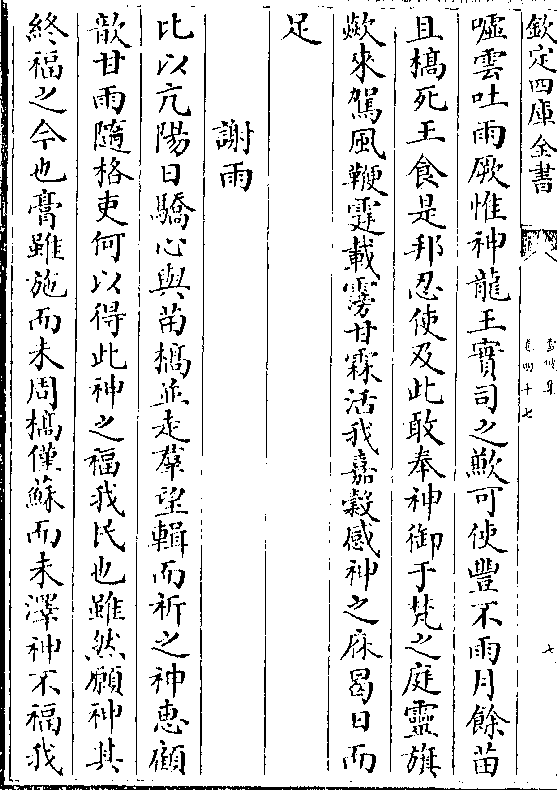 欽定四庫全書
卷四十七
七
噓雲吐雨厥惟神龍王實司之歉可使豐不雨月餘苗
且槁死王食是邦忍使及此敢奉神御于梵之庭靈旗
歘來駕風鞭霆載霶甘霖活我嘉穀感神之庥曷日而
足
謝雨
比以亢陽日驕心與苗槁並走羣望輯而祈之神惠顧
歆甘雨隨格吏何以得此神之福我民也雖然願神其
終福之今也膏雖施而未周槁僅蘇而未澤神不福我